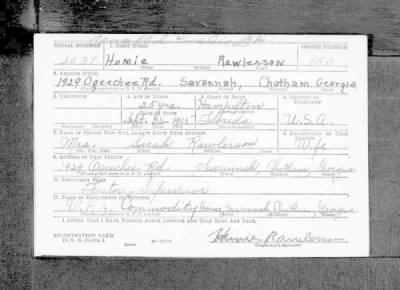 SERIAL NUMBER 1. NAME (Print) ORDER NUMBER
Humie Rawlerson 150
(First) (Middle) (Last)
2. ADDRESS (Print)
1929 Ogeechee Rd. Savannah, Chatham Georgia
3. TELEPHONE 4. AGE IN YEARS 5. PLACE OF BIRTH 6. COUNTRY OF CITIZENSHIP
25 yrs. Hampton
DATE OF BIRTH
Sept. 26 1915 Florida U.S.A.
7. NAME OF PERSON WHO WILL ALWAYS KNOW YOUR ADDRESS 8. RELATIONSHIP OF THAT PERSON
Mrs. Sarah Rawlerson Wife
9. ADDRESS OF THAT PERSON
1929 Ogeechee Rd. Savannah, Chatham, Georgia
10. EMPLOYER'S NAME
Supervisor
11. PLACE OF EMPLOYMENT OR BUSINESS
W.P.A. Commodity House, Savannah, Chatham, Georgia
I AFFIRM THAT I HAVE VERIFIED ABOVE ANSWERS AND THAT THEY ARE TRUE.
REGISTRATION CARD
D. S. S. Form 1
Humie Rawlerson
(Registrant's signature)